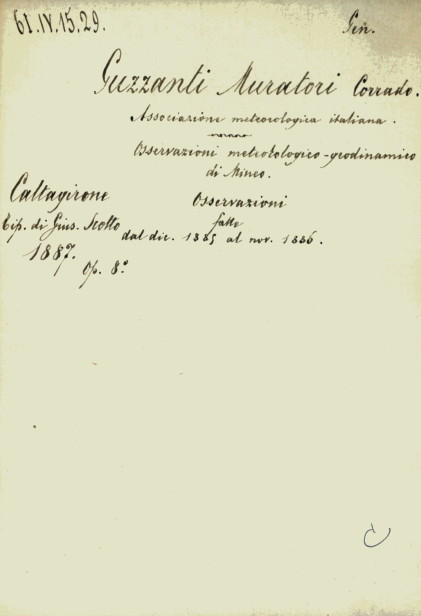 61.IV.15.29.
Gen.
Guzzanti Muratori Corrado.
Associazione meteorologica italiana.
Osservazioni meteorologico-geodinamico
di Mineo.
Caltagirone
Osservazioni
Tip. di Gius. Scotto
fatte
dal dic. 1885 al nov. 1886.
1887.
Op. 8°